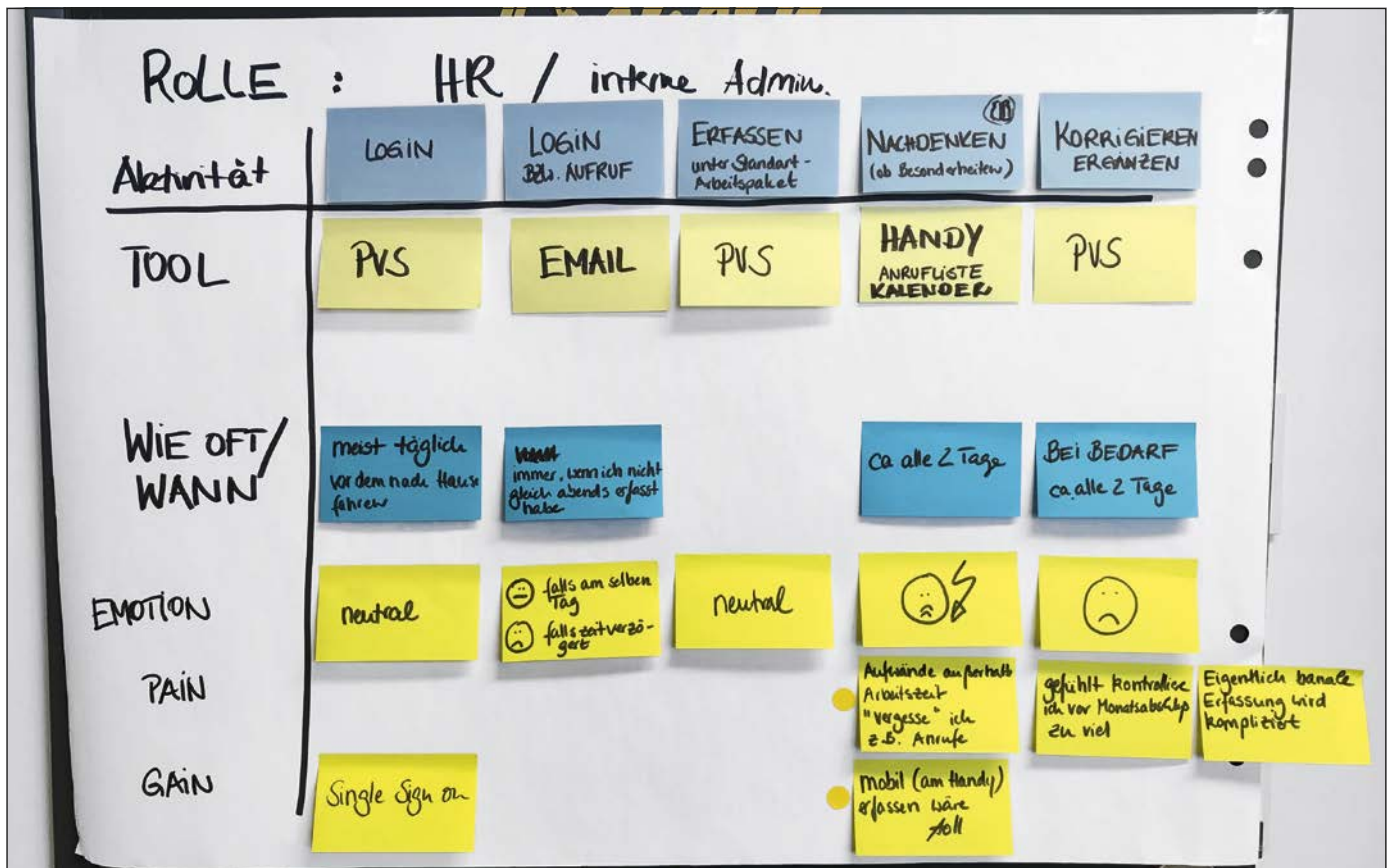 ROLLE : HR / interne Admin.
Aktivität
LOGIN
LOGIN
BZW. AUFRUF
ERFASSEN
unter Standart-
Arbeitspaket
NACHDENKEN
(ob Besonderheiten)
KORRIGIEREN
ERGÄNZEN
TOOL
PVS
EMAIL
PVS
HANDY
ANRUFLISTE
KALENDER
PVS
WIE OFT/
WANN
meist täglich
vor dem nach Hause
fahren
immer, wenn ich nicht
gleich abends erfasst
habe
ca alle 2 Tage
BEI BEDARF
ca. alle 2 Tage
EMOTION
neutral
falls am selben
Tag
falls zeitverzö-
gert
neutral
PAIN
Aufwände außerhalb
Arbeitszeit
"vergesse" ich
z.B. Anrufe
gefühlt kontrolliere
ich vor Monatsabschluss
zu viel
Eigentlich banale
Erfassung wird
kompliziert
GAIN
Single Sign on
mobil (am Handy)
erfassen wäre
toll